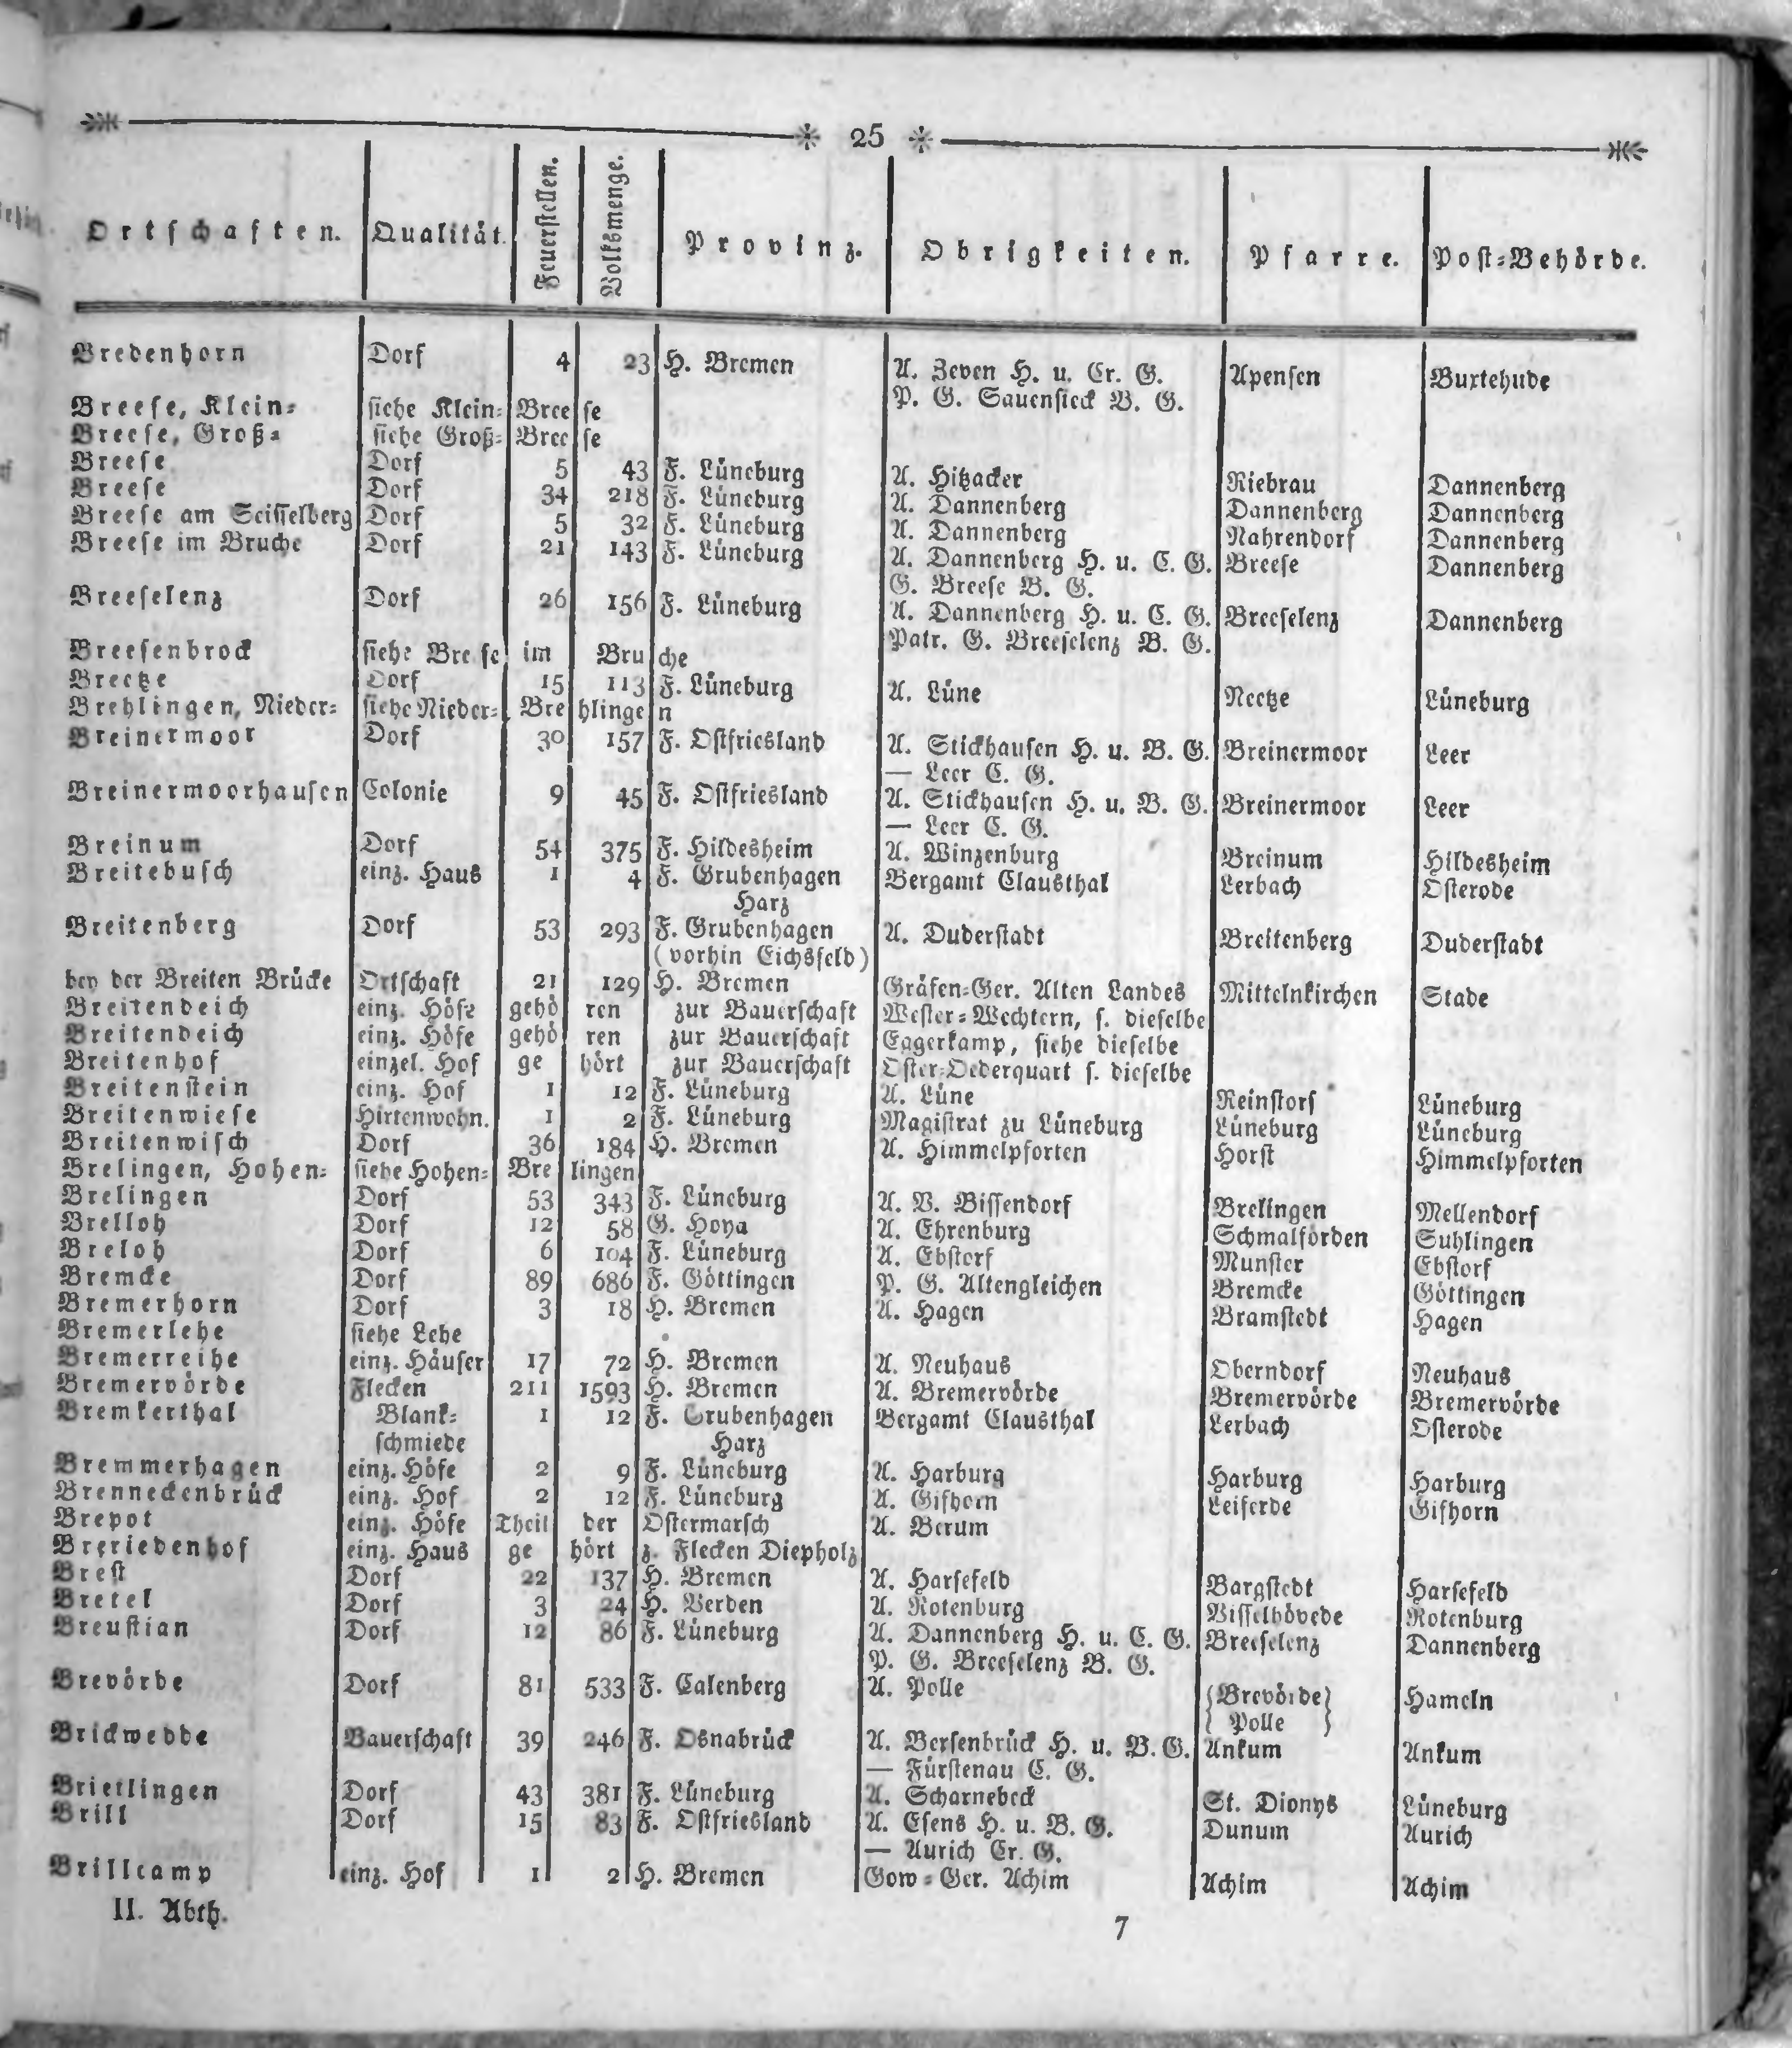 25
Ortschaften. Qualität. Feuerstellen. Volksmenge. Provinz. Obrigkeiten. Pfarre. Post-Behörde.
Bredenhorn Dorf 4 23 H. Bremen A. Zeven H. u. Cr. G. Apensen Buxtehude
P. G. Sauensieck B. G.
Breese, Klein- siehe Klein-Breese
Breese, Groß- siehe Groß-Breese
Breese Dorf 5 43 F. Lüneburg A. Hitzacker Riebrau Dannenberg
Breese Dorf 34 218 F. Lüneburg A. Dannenberg Dannenberg Dannenberg
Breese am Seisselberg Dorf 5 32 F. Lüneburg A. Dannenberg Nahrendorf Dannenberg
Breese im Bruche Dorf 21 143 F. Lüneburg A. Dannenberg H. u. C. G. Breese Dannenberg
G. Breese B. G.
Breeselenz Dorf 26 156 F. Lüneburg A. Dannenberg H. u. C. G. Breeselenz Dannenberg
Patr. G. Breeselenz B. G.
Breesenbrock siehe Breese im Bruche
Breetze Dorf 15 113 F. Lüneburg A. Lüne Neetze Lüneburg
Brehlingen, Nieder- siehe Nieder-Brehlingen
Breinermoor Dorf 30 157 F. Ostfriesland A. Stickhausen H. u. B. G. Breinermoor Leer
— Leer C. G.
Breinermoorhausen Colonie 9 45 F. Ostfriesland A. Stickhausen H. u. B. G. Breinermoor Leer
— Leer C. G.
Breinum Dorf 54 375 F. Hildesheim A. Winzenburg Breinum Hildesheim
Breitebusch einz. Haus 1 4 F. Grubenhagen Bergamt Clausthal Lerbach Osterode
Harz
Breitenberg Dorf 53 293 F. Grubenhagen A. Duderstadt Breitenberg Duderstadt
(vorhin Eichsfeld)
bey der Breiten Brücke Ortschaft 21 129 H. Bremen Gräfen-Ger. Alten Landes Mittelnkirchen Stade
Breitendeich einz. Höfe gehören zur Bauerschaft Wester-Wechtern, s. dieselbe
Breitendeich einz. Höfe gehören zur Bauerschaft Eggerkamp, siehe dieselbe
Breitenhof einzel. Hof gehört zur Bauerschaft Oster-Oederquart s. dieselbe
Breitenstein einz. Hof 1 12 F. Lüneburg A. Lüne Reinstorf Lüneburg
Breitenwiese Hirtenwohn. 1 2 F. Lüneburg Magistrat zu Lüneburg Lüneburg Lüneburg
Breitenwisch Dorf 36 184 H. Bremen A. Himmelpforten Horst Himmelpforten
Brelingen, Hohen- siehe Hohen-Brelingen
Brelingen Dorf 53 343 F. Lüneburg A. V. Bissendorf Brelingen Mellendorf
Brelloh Dorf 12 58 G. Hoya A. Ehrenburg Schmalförden Suhlingen
Breloh Dorf 6 104 F. Lüneburg A. Ebstorf Munster Ebstorf
Bremcke Dorf 89 686 F. Göttingen P. G. Altengleichen Bremcke Göttingen
Bremerhorn Dorf 3 18 H. Bremen A. Hagen Bramstedt Hagen
Bremerlehe siehe Lehe
Bremerreihe einz. Häuser 17 72 H. Bremen A. Neuhaus Oberndorf Neuhaus
Bremervörde Flecken 211 1593 H. Bremen A. Bremervörde Bremervörde Bremervörde
Bremkerthal Blank- 1 12 F. Grubenhagen Bergamt Clausthal Lerbach Osterode
schmiede Harz
Bremmerhagen einz. Höfe 2 9 F. Lüneburg A. Harburg Harburg Harburg
Brenneckenbrück einz. Hof 2 12 F. Lüneburg A. Gifhorn Leiferde Gifhorn
Brepot einz. Höfe Theil der Ostermarsch A. Berum
Breriedenhof einz. Haus gehört z. Flecken Diepholz
Brest Dorf 22 137 H. Bremen A. Harsefeld Bargstedt Harsefeld
Bretel Dorf 3 24 H. Verden A. Rotenburg Visselhövede Rotenburg
Breustian Dorf 12 86 F. Lüneburg A. Dannenberg H. u. C. G. Breeselenz Dannenberg
P. G. Breeselenz B. G.
Brevörde Dorf 81 533 F. Calenberg A. Polle {Brevörde} Hameln
{Polle}
Brickwedde Bauerschaft 39 246 F. Osnabrück A. Bersenbrück H. u. B. G. Ankum Ankum
— Fürstenau C. G.
Brietlingen Dorf 43 381 F. Lüneburg A. Scharnebeck St. Dionys Lüneburg
Brill Dorf 15 83 F. Ostfriesland A. Esens H. u. B. G. Dunum Aurich
— Aurich Cr. G.
Brillcamp einz. Hof 1 2 H. Bremen Gow-Ger. Achim Achim Achim
II. Abth. 7